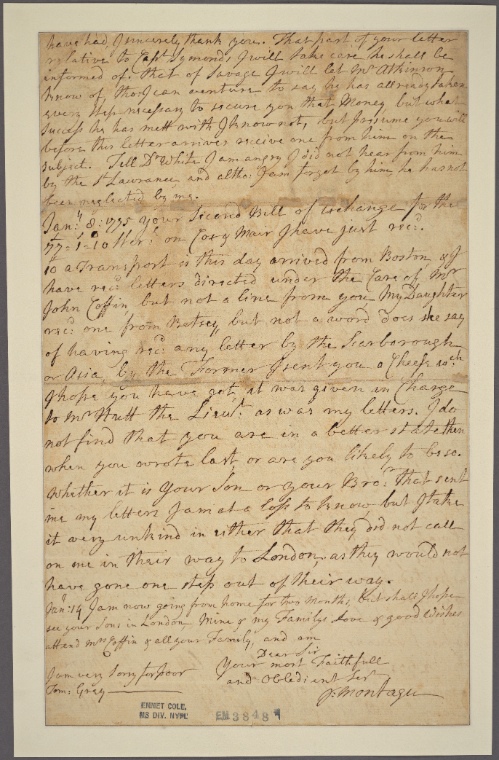 have had, I sincerely thank you. That part of your letter
relative to Capt. Symonds, I will take care he shall be
informed of; that of Savage I will let Mr. Atkinson
know of, tho I can venture to say he has allready taken
every step necessary to secure you that Money but what
success he has mett with I know not, but presume you will
before this letter arrives receive one from him on the
subject. Tell Dr. White I am angry I did not hear from him
by the St. Lawrance and altho: I am forgot by him, he has not
been neglected by me.
Janr. 8: 1775 your Second Bill of Exchange for the
77=1=10 Ster: on Cory Mair I have just recd.
10 a Transport is this day arrived from Boston & I
have recd. letters directed under the Care of Mr
John Coffin but not a line from you My Daughter
recd. one from Batsey but not a word does she say
of having recd. any letter by the Scarborough
or Asia by the Former I sent you a Cheese wch
I hope you have got, it was given in Charge
to Mr Nutt the Lieut: as was my letters. I do
not find that you are in a better state then
when you wrote last or are you likely to be so.
Whether it is your Son or your Bror: that sent
me my letters I am at a loss to know, but I take
it very unkind in either that they did not call
on me in their way to London, as they would not
have gone one step out of their way.
Janr: 14 I am now going from home for two Months, but shall I hope
see your Sons in London. Mine & my Familys Love & good wishes
attend Mrs Coffin & all your Family, and am
Dear Sir
Your most Faithfull
and Obedient Ser
J Montagu
I am very sorry for poor
Tom: Gray
EMMET COLL.
MS DIV. NYPL
EM 3848